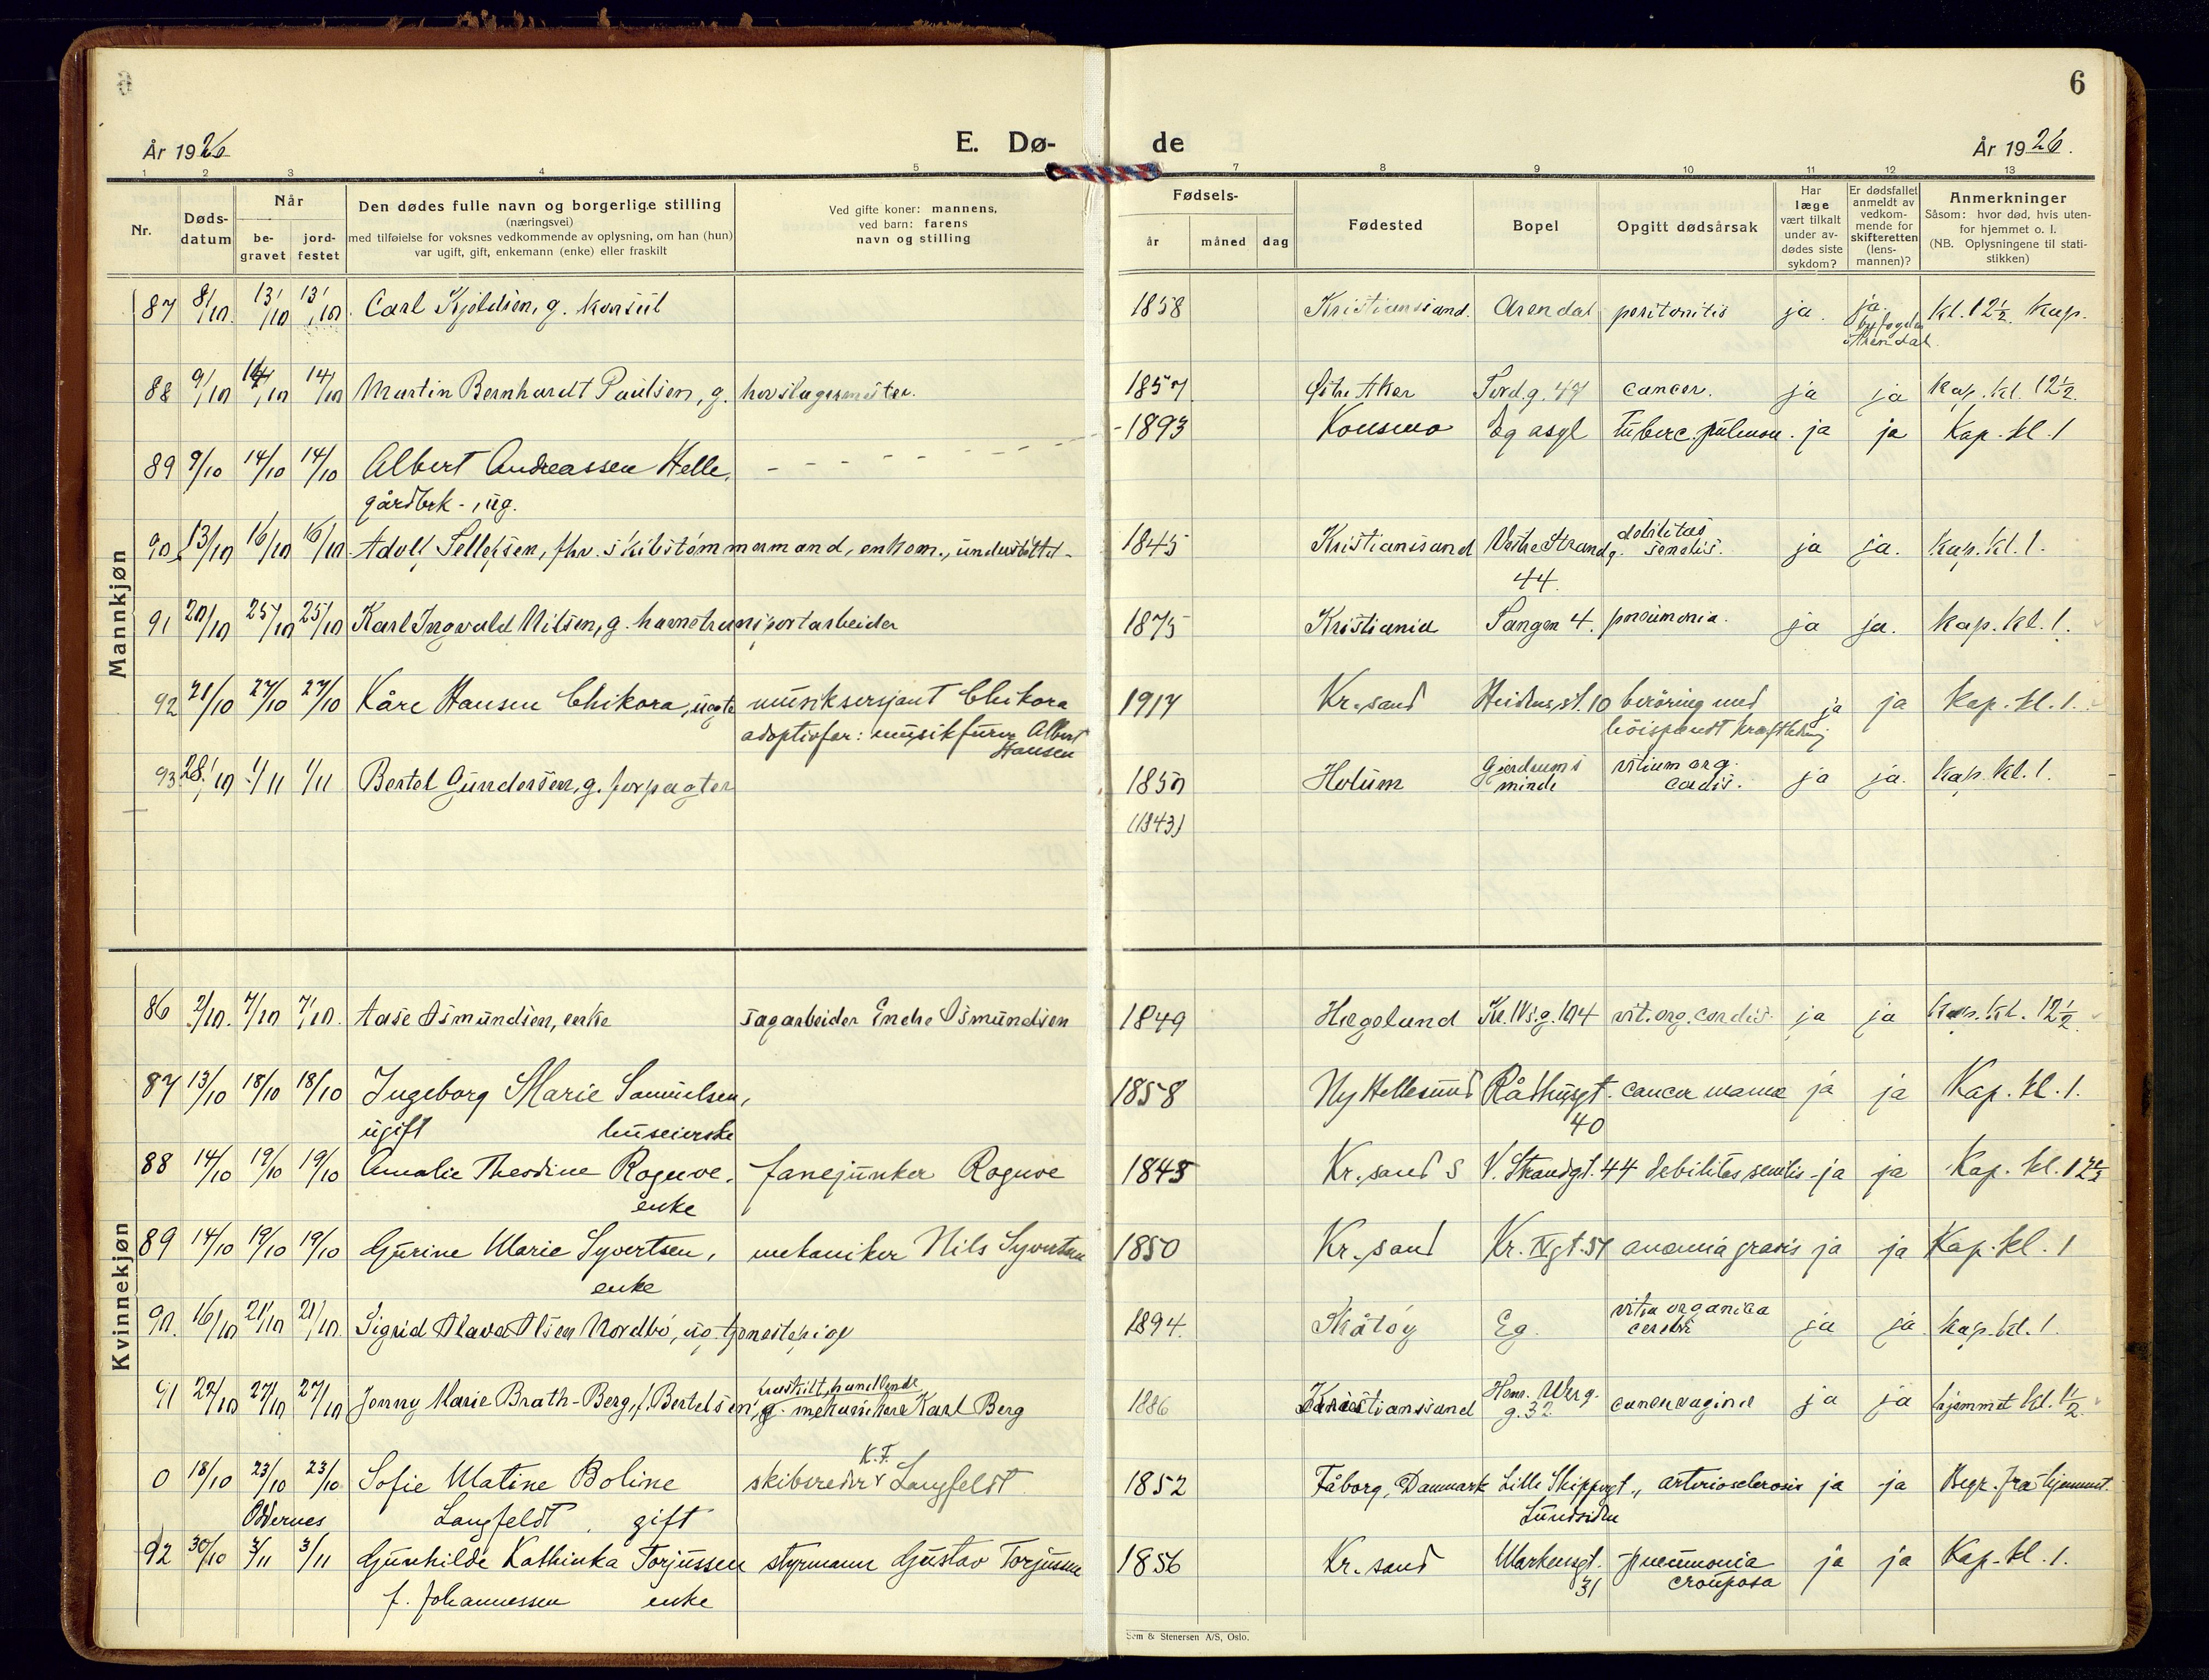 6
År 1926
E. Dø-
de
År 1926.
1 2 3 4 5 7 8 9 10 11 12 13
Nr.
Døds-
datum
Når
be-
gravet
jord-
festet
Den dødes fulle navn og borgerlige stilling
(næringsvei)
med tilføielse for voksnes vedkommende av oplysning, om han (hun)
var ugift, gift, enkemann (enke) eller fraskilt
Ved gifte koner: mannens,
ved barn: farens
navn og stilling
Fødsels-
år måned dag
Fødested
Bopel
Opgitt dødsårsak
Har
læge
vært tilkalt
under av-
dødes siste
sykdom?
Er dødsfallet
anmeldt av
vedkom-
mende for
skifteretten
(lens-
mannen)?
Anmerkninger
Såsom: hvor død, hvis uten-
for hjemmet o. l.
(NB. Oplysningene til stati-
stikken)
Mannkjøn
87 8/10. 13/10 13/10. Carl Kjeldsen, g. konsul 1858 Kristianssand. Arendal peritonitis ja. ja. kl. 12½. Kap.
byfogden
Arendal.
88 9/10 14/10 14/10 Martin Bernhardt Paulsen, g. hovslagermester. 1857 Østre Aker Tord.g. 47 cancer. ja ja Kap. kl. 12½.
89 9/10 14/10 14/10 Albert Andreassen Helle, - - - - 1893 Konsmo Eg asyl tuberc. pulmon. ja ja Kap. kl. 1
gårdbrk -, ug.
90 13/10 16/10 16/10 Adolf Tellefsen, fhv. skibstømmermand, enkem., understøttet - 1845 Kristianssand Vestre Strandg. debilitas senilis. ja ja. Kap. kl. 1.
44
91 20/10 25/10 25/10 Karl Ingvald Nilsen, g. havnetransportarbeider 1875 Kristiania Tangen 4. pneumonia. ja ja. Kap. kl. 1.
92 21/10 27/10 27/10 Kåre Hansen Chikora, uegte musiksersjant Chikora 1917 Kr.sand 10 beröring med ja ja Kap. kl. 1.
adoptivfar: musikfurer Albert Hansen
höispændt kraftledning
93 28/10 1/11 1/11 Bertel Gundersen, g. forpagter 1850 Holum Gjerdrums minde vitium org. cordis. ja ja. Kap. kl. 1.
(1843)
Kvinnekjøn
86 2/10. 7/10 7/10. Aase Osmundsen, enke sagarbeider Endre Osmundsen 1849 Hægeland Kr.IVs.g. 104 vit. org. cordis. ja ja Kap. kl. 12½
87 13/10 18/10 18/10 Ingeborg Marie Samuelsen, 1858 Ny Hellesund Rådhusgt. cancer mama ja ja Kap. kl. 1.
ugift huseierske 40
88 14/10 19/10 19/10 Amalie Theodine Rogwe. fanejunker Rogwe 1845 Kr.sand S V. Strandgt. 44 debilitas senilis - ja ja Kap. kl. 12½
enke
89 14/10 19/10 19/10 Gurine Marie Syvertsen, mekaniker Nils Syvertsen 1850 Kr.sand Kr. IVgt. 57 anæmia gravis ja ja Kap. kl. 1
enke
90. 16/10 21/10 21/10. Sigrid Olava Olsen Nordbö, ug. tjenestepige 1894. Skåtöy Eg. vitia organica cerebri ja ja Kap. kl. 1.
91 22/10 27/10 27/10 Jenny Marie Brath-Berg, f. Bertelsen, g. mekaniker Karl Berg 1886 Kristianssand Henr. Werg. g. 32 cancer vaginæ ja ja hjemmet kl. 1½.
fraskilt, handlende
0 18/10 23/10 23/10 Sofie Matine Boline skibsreder K.F. Langfeldt 1852 Fåborg, Danmark Lille Skippergt., arteriosclerosis ja ja Begr. fra hjemmet.
Oddernes Langfeldt, gift Lundsiden
92 30/10 3/11 3/11 Gunhilde Kathinka Torjussen styrmann Gustav Torjussen 1856 Kr.sand Markensgt. 31 pneumonia crouposa ja ja Kap. kl. 1.
f. Johannessen enke
Sem & Stenersen A/S, Oslo.